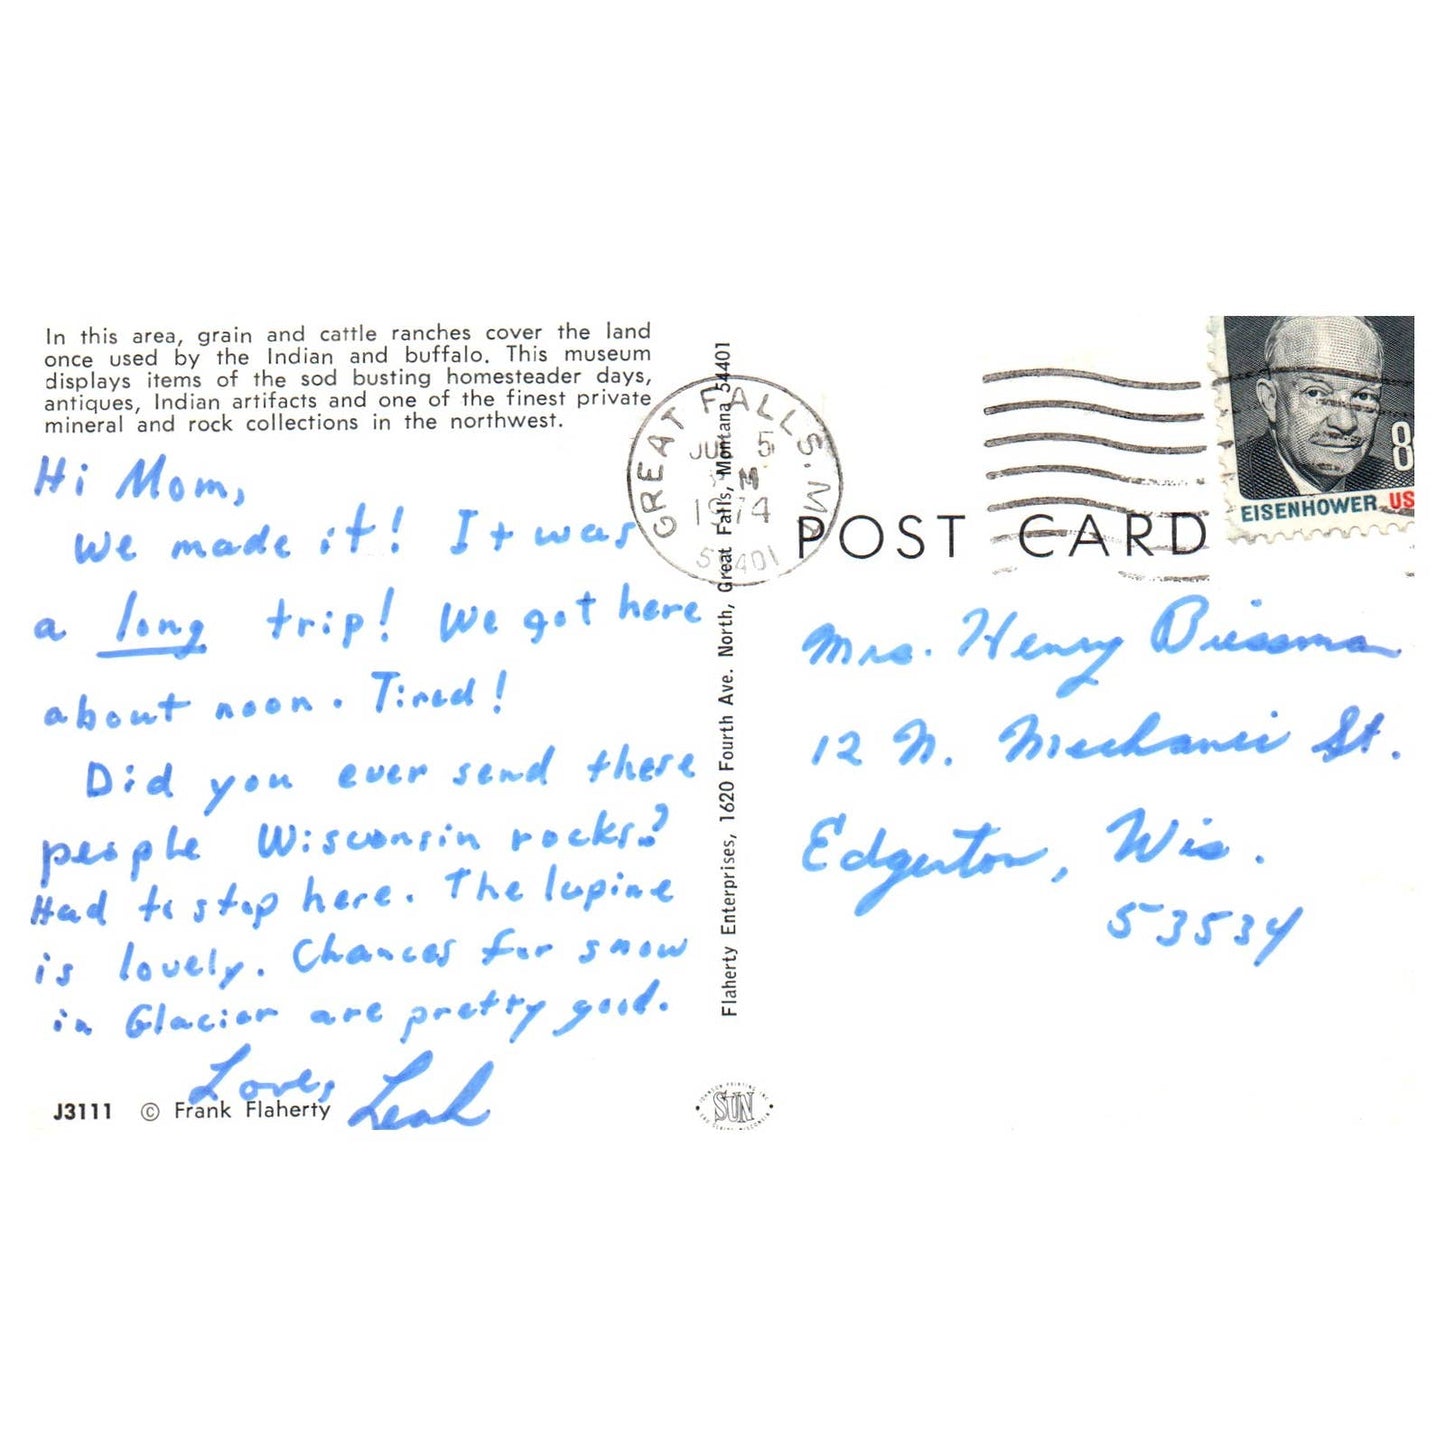 In this area, grain and cattle ranches cover the land
once used by the Indian and buffalo. This museum
displays items of the sod busting homesteader days,
antiques, Indian artifacts and one of the finest private
mineral and rock collections in the northwest.
Hi Mom,
We made it! It was
a long trip! We got here
about noon. Tired!
Did you ever send these
people Wisconsin rocks?
Had to stop here. The lupine
is lovely. Chances for snow
in Glacier are pretty good.
Love, Leah
J3111 © Frank Flaherty
Flaherty Enterprises, 1620 Fourth Ave. North, Great Falls, Montana 54401
GREAT FALLS, M
5
M
1974
SUN
JOHNSON PRINTING INC.
EAU CLAIRE WISCONSIN
8
EISENHOWER US
POST CARD
Mrs. Henry Biessman
12 N. Mechanic St.
Edgerton, Wis.
53534